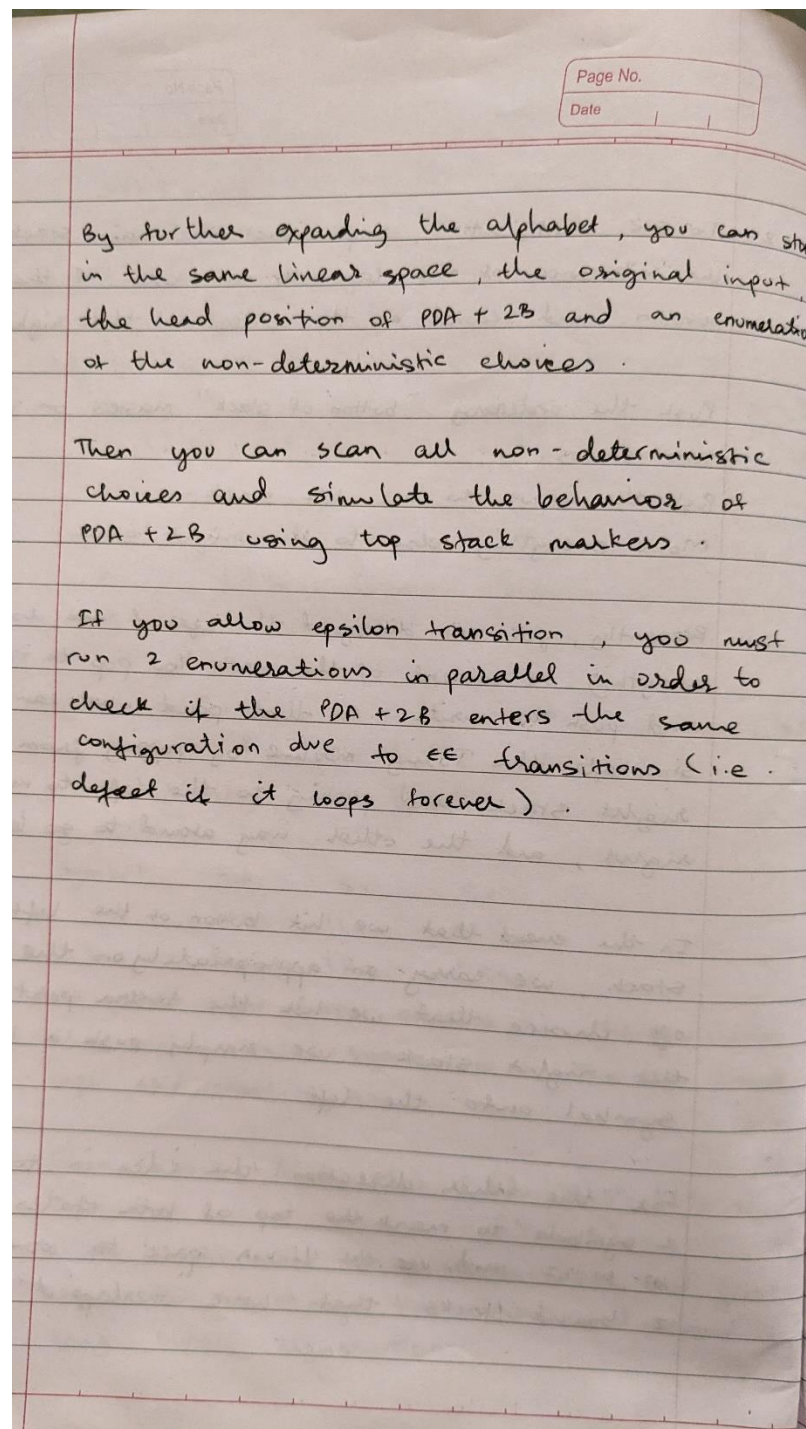 Page No.
Date
By further expanding the alphabet, you can sto
in the same linear space, the original input,
the head position of PDA + 2B and an enumeratio
of the non-deterministic choices.
Then you can scan all non-deterministic
choices and simulate the behavior of
PDA +2B using top stack markers.
If you allow epsilon transition, you must
run 2 enumerations in parallel in order to
check if the PDA +2B enters the same
configuration due to ϵϵ transitions (i.e.
defect if it loops forever).